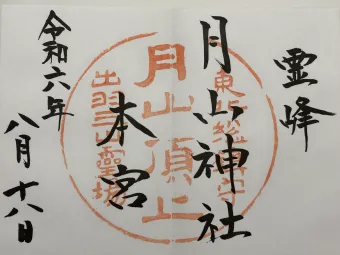 霊峰
月山神社
本宮
令和六年
八月十八日
東北総鎮守
月山頂上